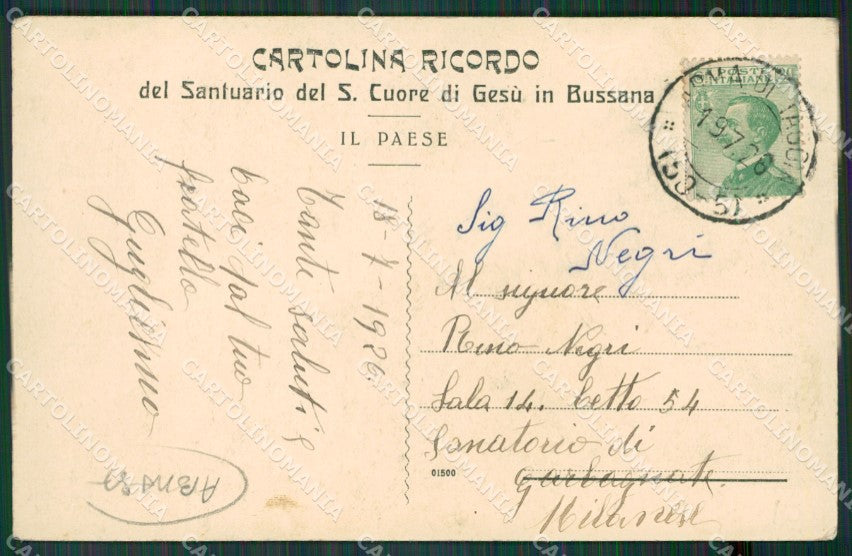 CARTOLINA RICORDO
del Santuario del S. Cuore di Gesù in Bussana
IL PAESE
POSTE ITALIANE
19.7.26
18-7-1926
Tanti saluti e
baci dal tuo
fratello
Guglielmo
Sig Rino
Negri
Al signore
Rino Negri
Sala 14. Letto 54
Sanatorio di
Garbagnate
Milanese
01500
CARTOLINOMANIA